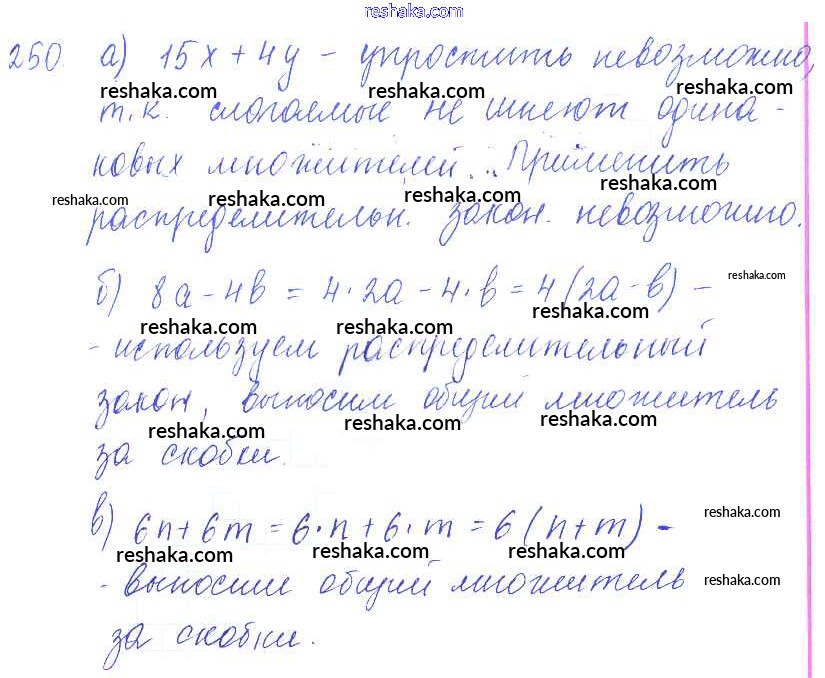 reshaka.com
250. а) 15x + 4y - упростить невозможно,
reshaka.com reshaka.com reshaka.com
т.к. слогаемые не имеют одина-
ковых множителей. Применить
reshaka.com reshaka.com reshaka.com reshaka.com
распределительн. закон. невозможно.
б) 8a - 4b = 4 · 2a - 4 · b = 4(2a - b) -
reshaka.com
reshaka.com reshaka.com reshaka.com
- используем распределительный
закон, выносим общий множитель
reshaka.com reshaka.com reshaka.com
за скобки.
в) 6n + 6m = 6 · n + 6 · m = 6(n + m) -
reshaka.com
reshaka.com reshaka.com reshaka.com
- выносим общий множитель
reshaka.com
за скобки.